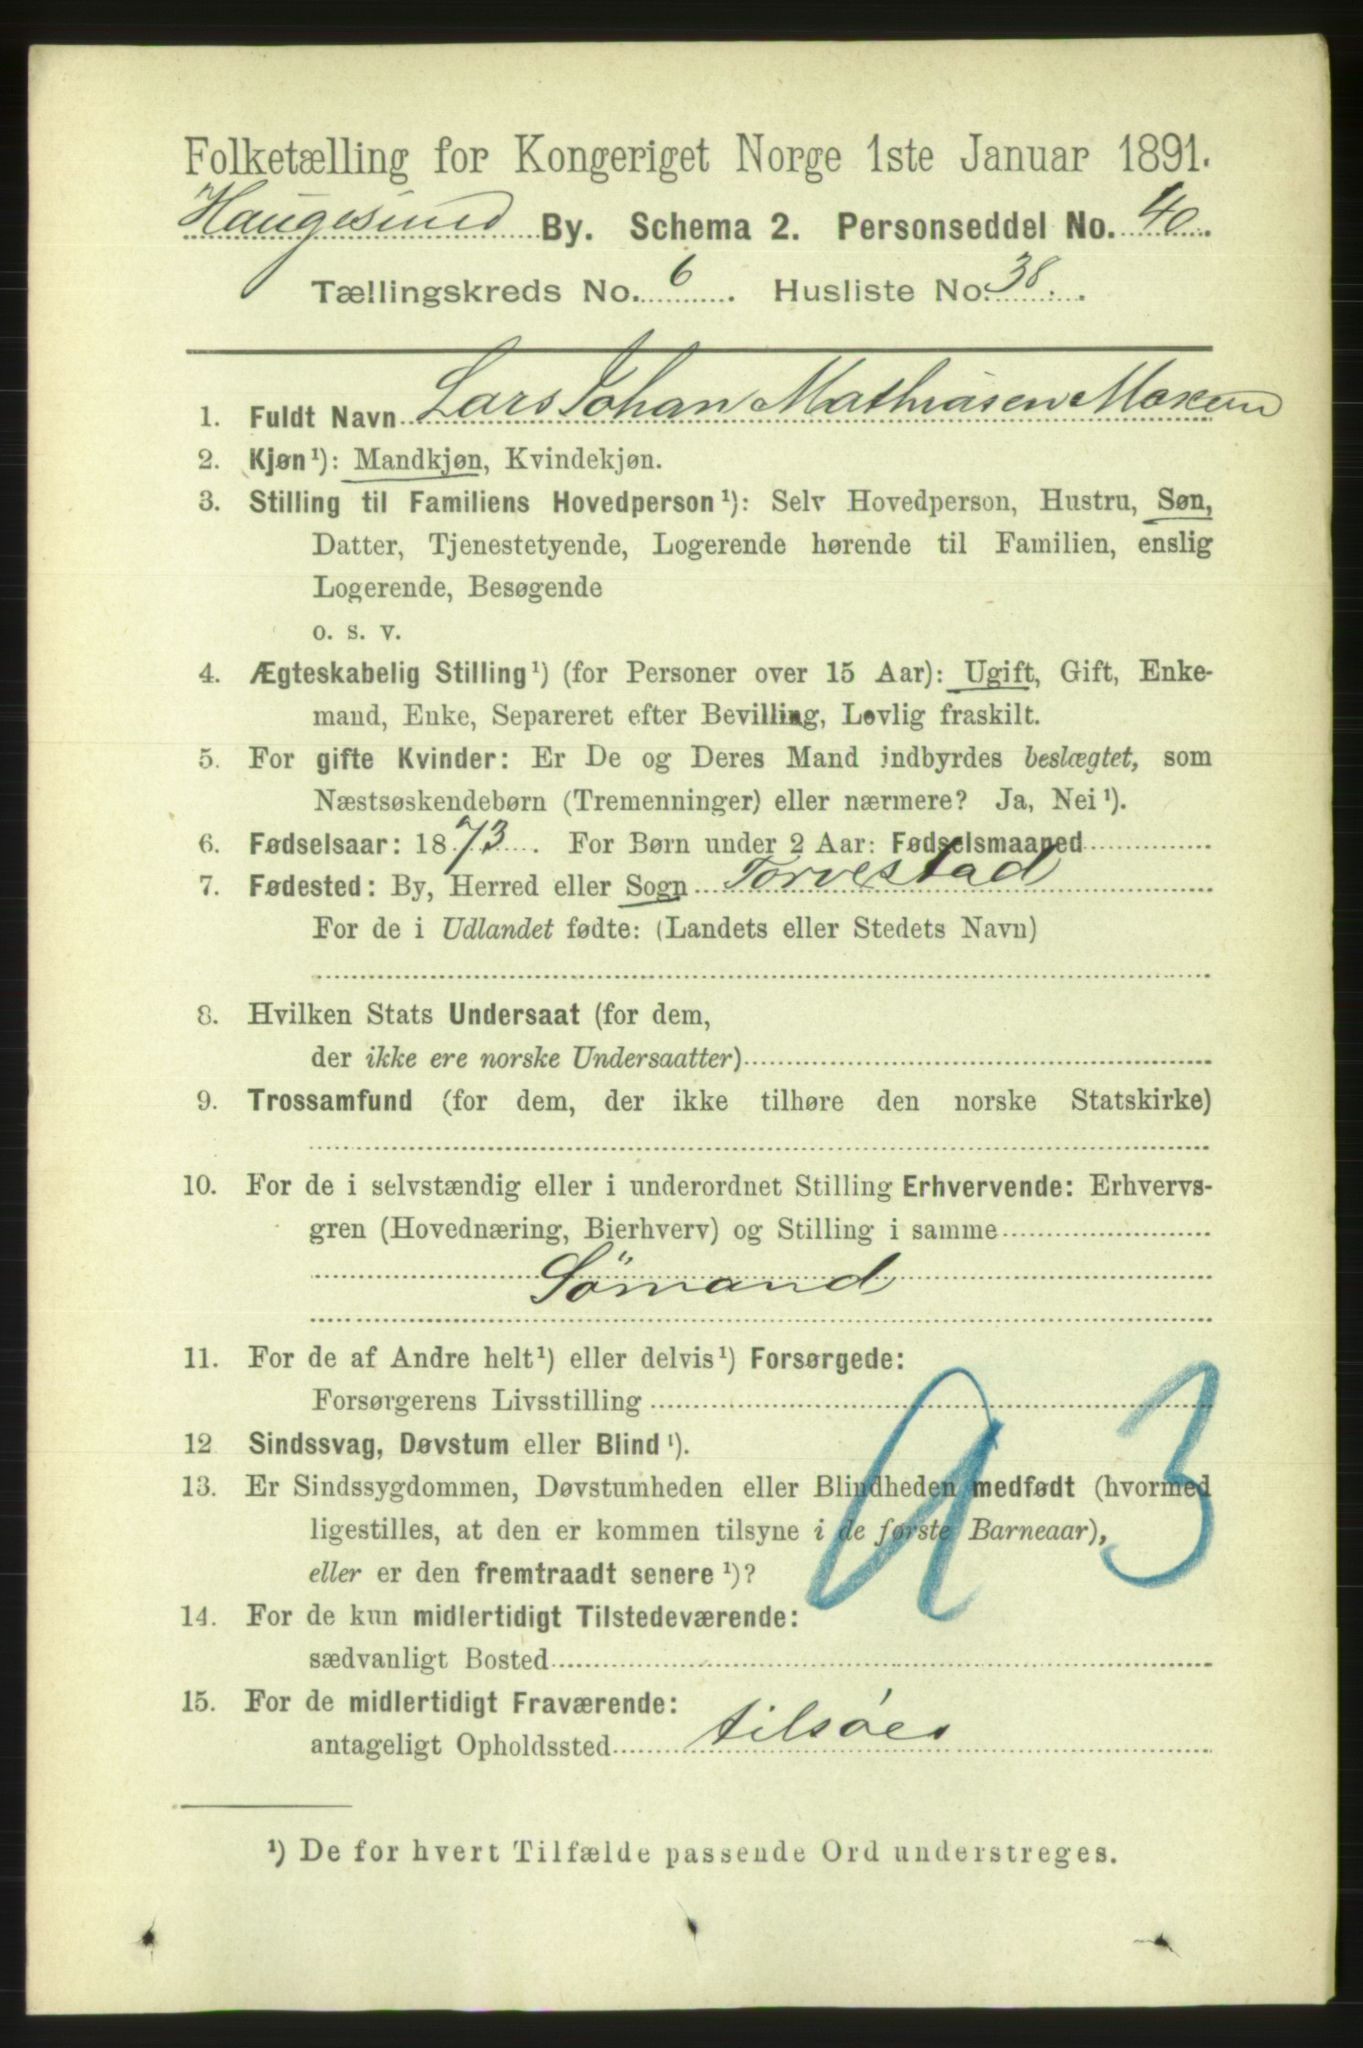 Folketælling for Kongeriget Norge 1ste Januar 1891.
Haugesund By. Schema 2. Personseddel No. 40
Tællingskreds No. 6. Husliste No. 38.
1. Fuldt Navn Lars Johan Mathiasen
2. Kjøn¹): Mandkjøn, Kvindekjøn.
3. Stilling til Familiens Hovedperson¹): Selv Hovedperson, Hustru, Søn,
Datter, Tjenestetyende, Logerende hørende til Familien, enslig
Logerende, Besøgende
o. s. v.
4. Ægteskabelig Stilling¹) (for Personer over 15 Aar): Ugift, Gift, Enke-
mand, Enke, Separeret efter Bevilling, Lovlig fraskilt.
5. For gifte Kvinder: Er De og Deres Mand indbyrdes beslægtet, som
Næstsøskendebørn (Tremenninger) eller nærmere? Ja, Nei¹).
6. Fødselsaar: 1873. For Børn under 2 Aar: Fødselsmaaned
7. Fødested: By, Herred eller Sogn Torvestad
For de i Udlandet fødte: (Landets eller Stedets Navn)
8. Hvilken Stats Undersaat (for dem,
der ikke ere norske Undersaatter)
9. Trossamfund (for dem, der ikke tilhøre den norske Statskirke)
10. For de i selvstændig eller i underordnet Stilling Erhvervende: Erhvervs-
gren (Hovednæring, Bierhverv) og Stilling i samme
Sömand
11. For de af Andre helt¹) eller delvis¹) Forsørgede:
Forsørgerens Livsstilling
12 Sindssvag, Døvstum eller Blind¹).
13. Er Sindssygdommen, Døvstumheden eller Blindheden medfødt (hvormed
ligestilles, at den er kommen tilsyne i de første Barneaar),
eller er den fremtraadt senere¹)?
14. For de kun midlertidigt Tilstedeværende:
sædvanligt Bosted
15. For de midlertidigt Fraværende:
antageligt Opholdssted tilsöes
¹) De for hvert Tilfælde passende Ord understreges.